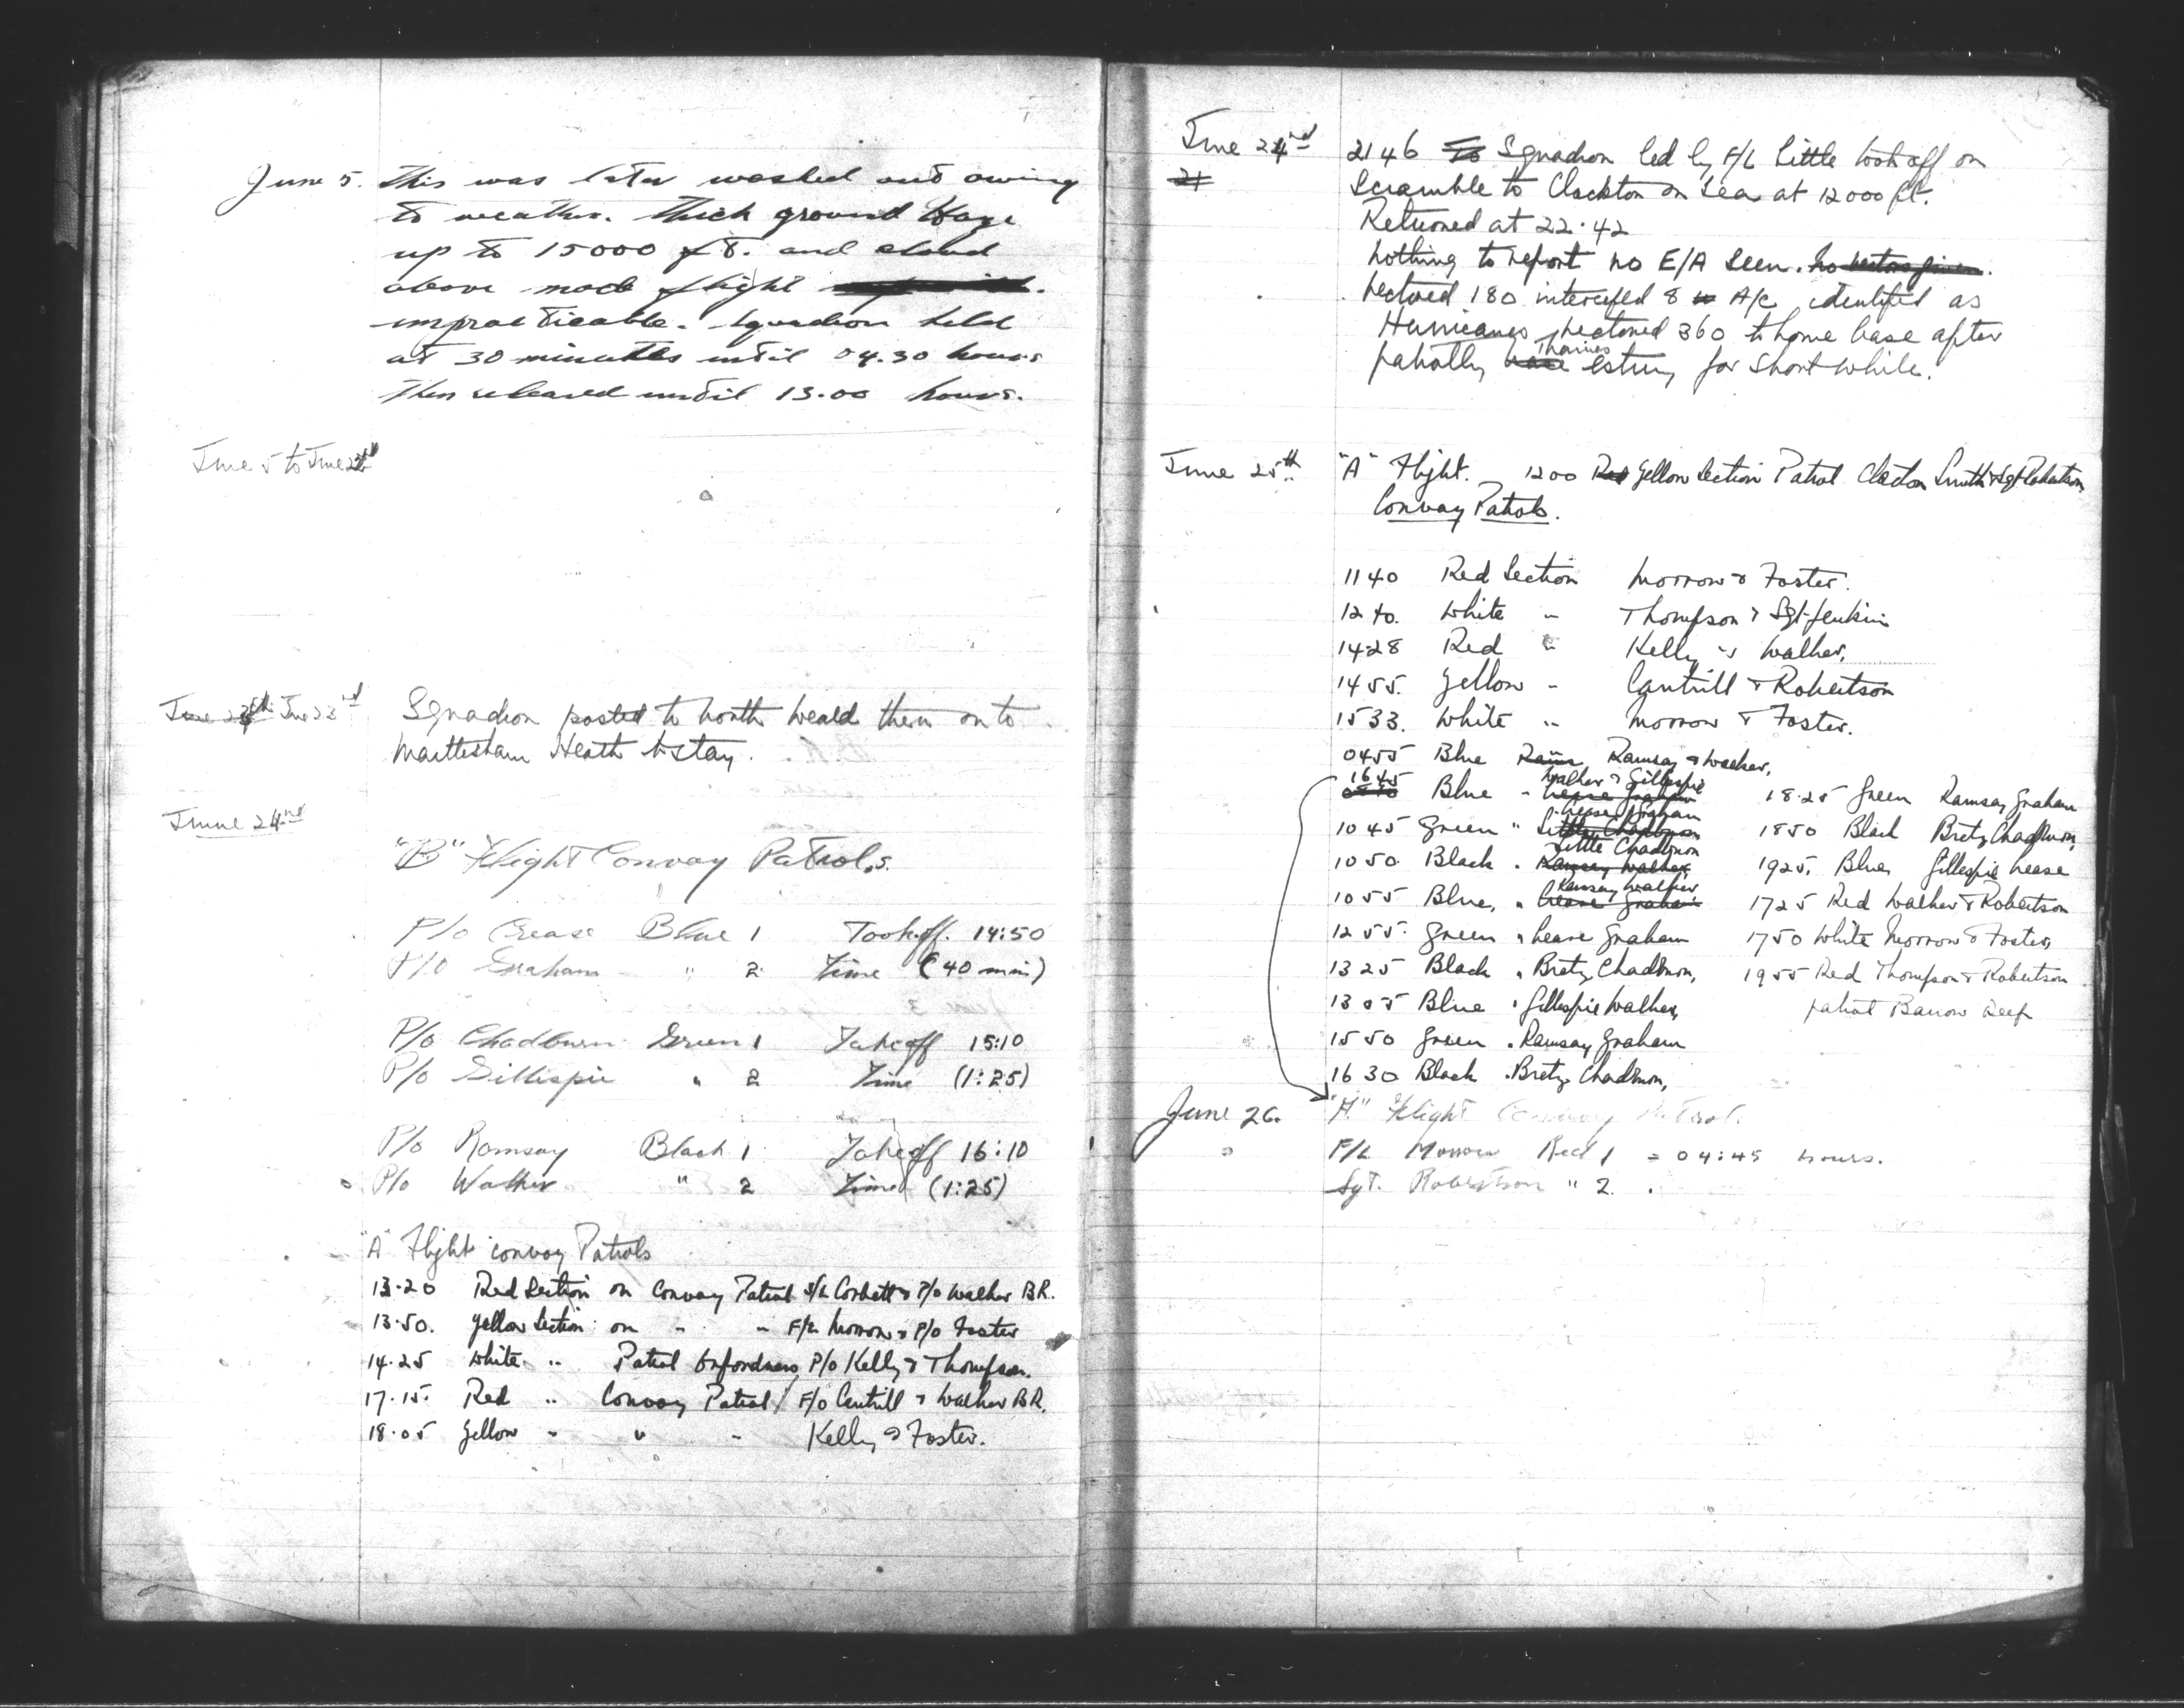 June 5. This was later washed out owing
to weather. Thick ground Haze
up to 15000 ft. and cloud
above made flight
impracticable. Squadron held
at 30 minutes until 04.30 hours
then released until 13.00 hours.
June 5 to June 22nd
June 23rd Squadron posted to North Weald then on to
Martlesham Heath to stay.
June 24nd
"B" Flight Convoy Patrols.
P/o Crease Blue 1 Took off. 14:50
P/O Graham " 2 Time (40 min)
P/o Chadburn Green 1 Take off 15:10
P/o Gillispie " 2 Time (1:25)
P/o Ramsay Black 1 Take off 16:10
P/o Walker " 2 Time (1:25)
"A" Flight convoy Patrols
13.20 Red Section on Convoy Patrol S/L Corbett & P/o Walker B.R.
13.50. Yellow Section on " " F/L Morrow & P/O Foster
14.25 White " Patrol Orfordness P/o Kelly & Thompson.
17.15. Red " Convoy Patrol / F/o Cantrill & Walker B.R.
18.05 Yellow " " " Kelly & Foster.
June 24nd 2146 Squadron led by F/L Little took off on
21
Scramble to Clackton on Sea at 12000 ft.
Returned at 22.42
Nothing to report no E/A seen. No vectors given.
Vectored 180 intercepted 8 A/c identified as
Hurricanes vectored 360 to home base after
patrolly Thames estury for short while.
June 25th "A" Flight. 1200 Red Yellow Section Patrol Clacton Smith & Sgt Robertson
Convoy Patrols.
1140 Red Section Morrow & Foster.
1240. White " Thompson & Sgt Jenkin
1428 Red " Kelly & Walker.
1455. Yellow " Cantrill & Robertson
1533. White " Morrow & Foster.
0455 Blue Ramsay & Walker,
1645 Blue " Walker & Gillespie 18.25 Green Ramsay Graham
1045 Green " Crease Graham 1850 Black Bretz Chadburn,
1050 Black " Little Chadburn 1925. Blue, Gillespie Crease
1055 Blue, " Ramsay Walker 1725 Red Walker & Robertson
1255. Green " Crease Graham 1750 White Morrow & Foster,
1325 Black " Bretz Chadburn, 1955 Red Thompson & Robertson
1355 Blue " Gillespie Walker, patrol Barrow Deep
1550 Green " Ramsay Graham
1630 Black " Bretz Chadburn,
June 26. "A" Flight Convoy Patrol.
F/L Morrow Red 1 = 04:45 hours.
Sgt. Robertson " 2.